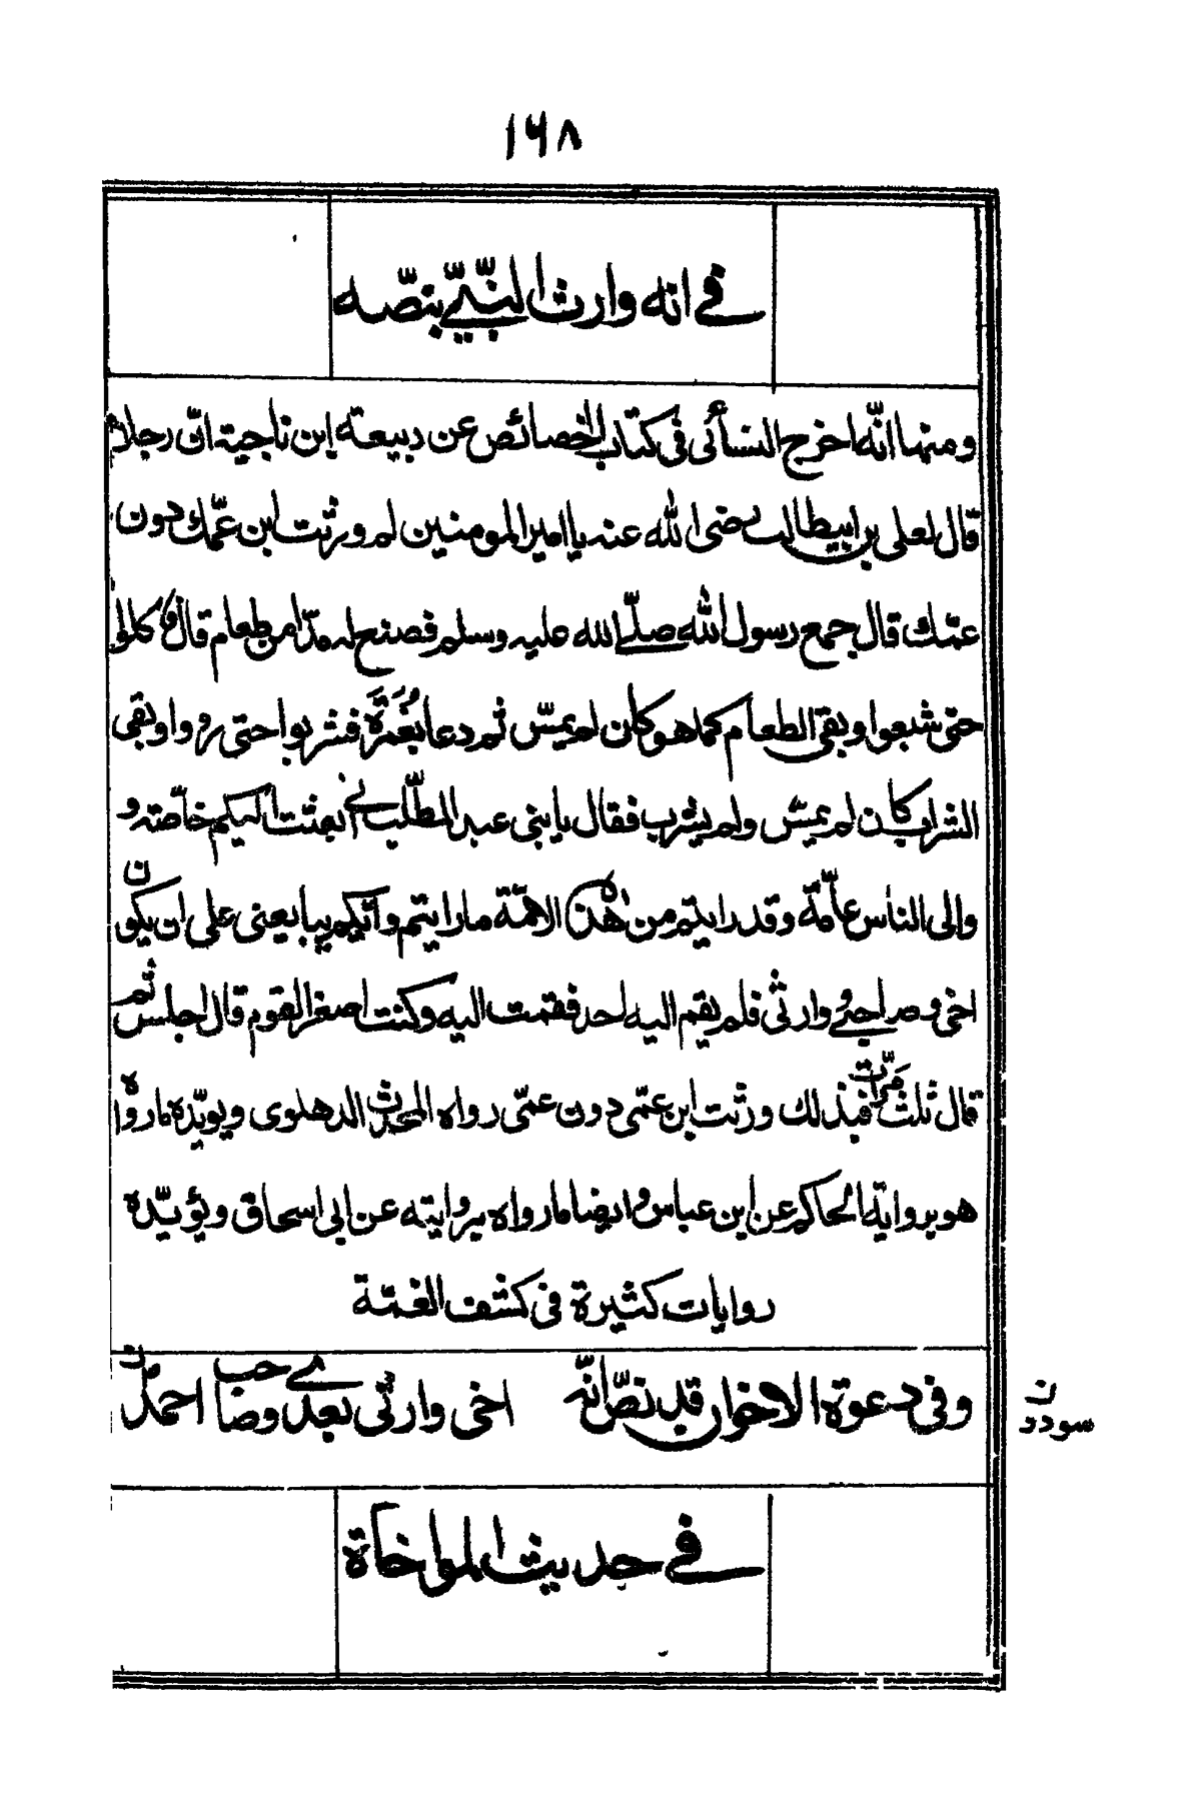 ١٦٨
في انه وارث النبّي بنصّه
ومنها انّه اخرج النسأئى فى كتاب الخصائص عن ربيعة ابن ناجية انّ رجلا
قال لعلى بن ابيطالب رضى الله عنه يا امير المومنين لم ورثت ابن عمّك دون
عمّك قال جمع رسول الله صلّے الله عليه وسلم فصنع لهم مدّا من طعام قال فاكلوا
حتى شبعوا وبقى الطعام كما هو كان لم يمسّ ثم دعا بغُمَرَة فشربوا حتى رووا وبقى
الشراب كان لم يمسّ ولم يشرب فقال يا بنى عبد المطّلب انى بعثت اليكم خاصّته و
والى الناس عامّة وقد رايتم من هذه الامّة ما رايتم وايّكم يبايعنى على ان يكون
اخى وصاحبے ووارثى فلم يقم اليه احد فقمت اليه وكنت اصغر القوم قال اجلس ثم
قال ثلث مرّات فبذلك ورثت ابن عمّى دون عمّى رواه المحدث الدهلوى ويويّده ما رواه
هو برواية الحاكم عن ابن عباس وايضا ما رواه بروايته عن ابى اسحاق ويؤيّده
روايات كثيرة فى كشف الغمّة
وفى دعوة الاخوان قد نصّ انّه اخى وارثى بعدے وصاحب احمدن
ن
سودد
في حديث المواخاة